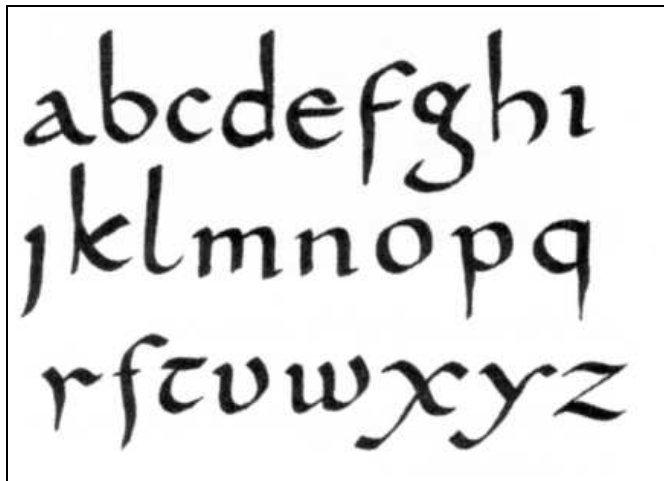 abcdefghi
jklmnopq
rſtvwxyz